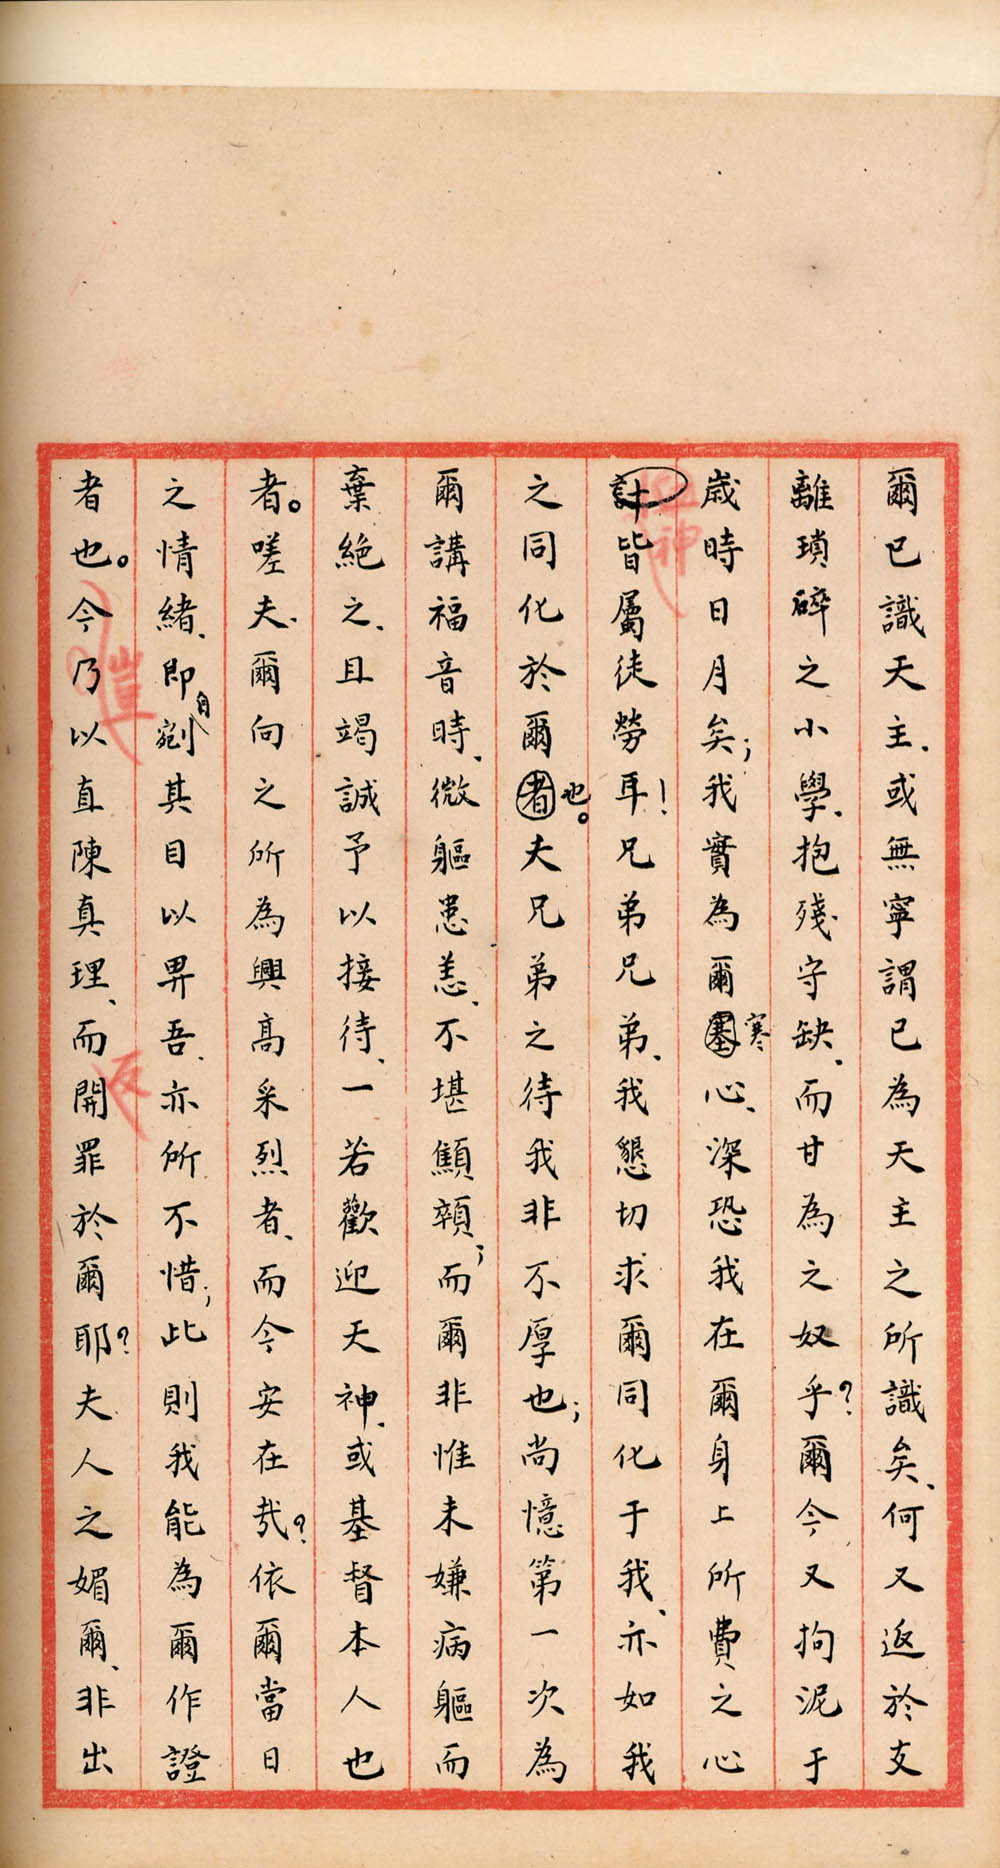 爾已識天主、或無寧謂已為天主之所識矣、何又返於支
離瑣碎之小學、抱殘守缺、而甘為之奴乎?爾今又拘泥于
歲時日月矣;我實為爾塞寒心、深恐我在爾身上所費之心
計皆屬徒勞耳!兄弟兄弟、我懇切求爾同化于我、亦如我
之同化於爾者也。夫兄弟之待我非不厚也;尚憶第一次為
爾講福音時、微軀患恙、不堪顦顇;而爾非惟未嫌病軀而
棄絕之、且竭誠予以接待、一若歡迎天神、或基督本人也
者。嗟夫、爾向之所為興高采烈者、而今安在哉?依爾當日
之情緒、即自剜其目以畀吾、亦所不惜;此則我能為爾作證
者也。今乃以直陳真理、而開罪於爾耶?夫人之媚爾、非出
神
返